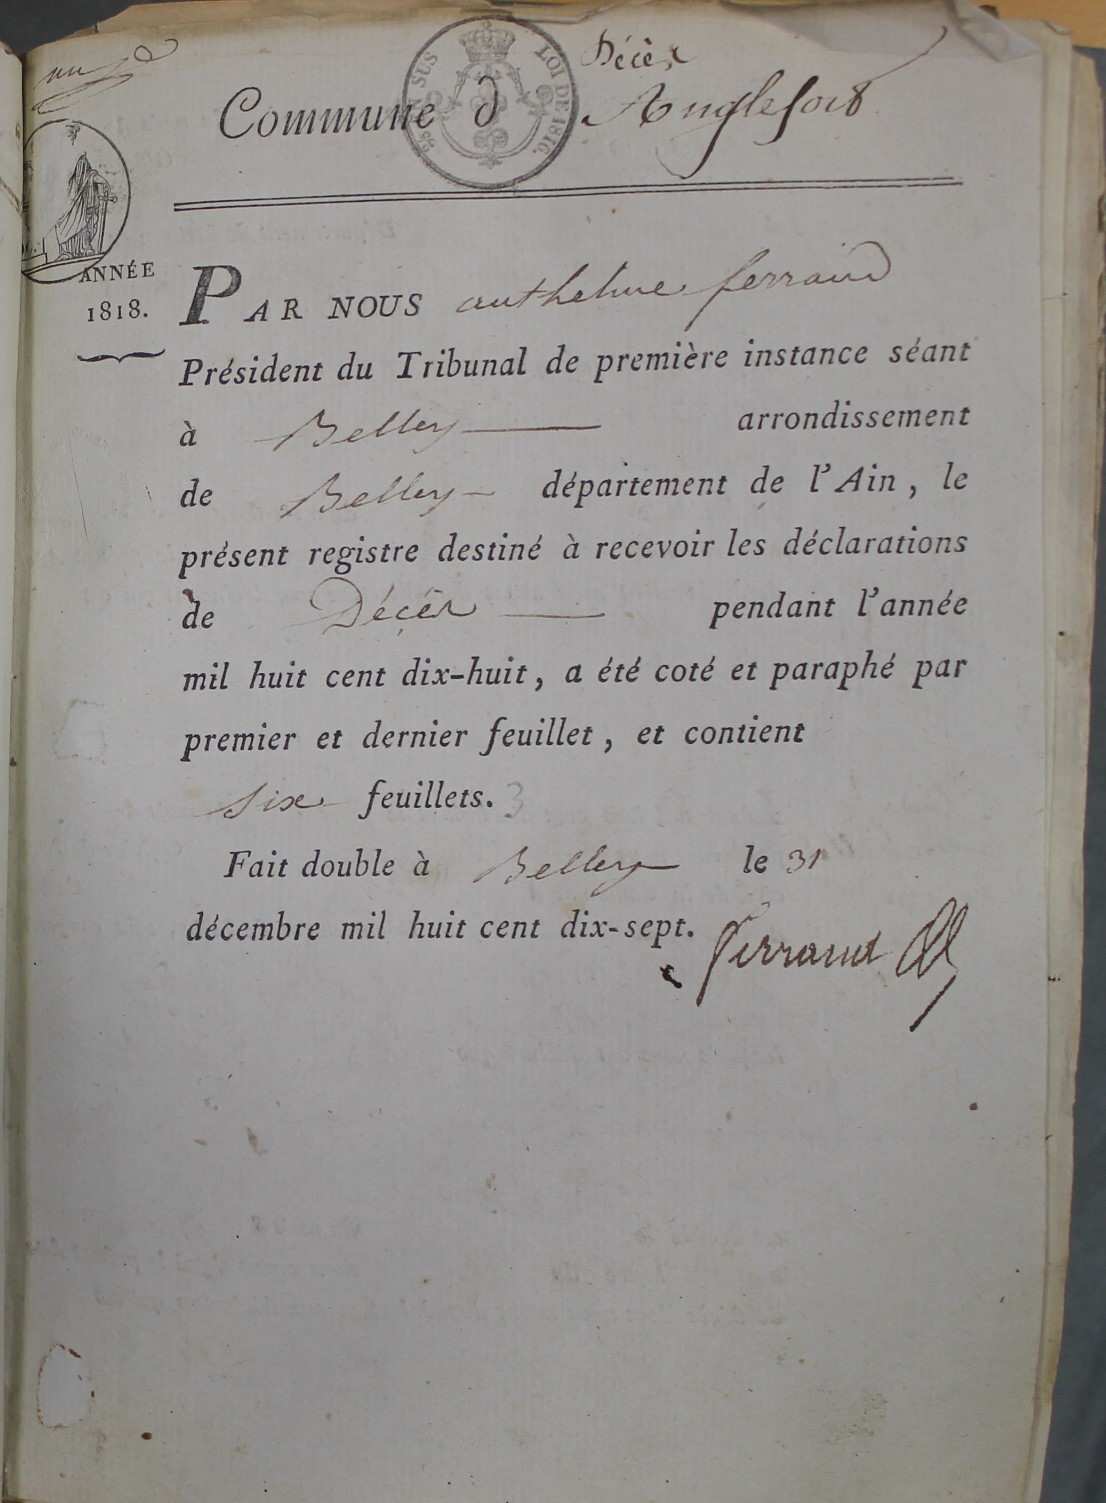 un
Décès
Commune d Anglefort
EN SUS LOI DE 1816.
ANNÉE
1818.
PAR NOUS anthelme ferrand
Président du Tribunal de première instance séant
à Belley arrondissement
de Belley département de l'Ain, le
présent registre destiné à recevoir les déclarations
de Décès pendant l'année
mil huit cent dix-huit, a été coté et paraphé par
premier et dernier feuillet, et contient
six feuillets. 3
Fait double à Belley le 31
décembre mil huit cent dix-sept.
ferrand